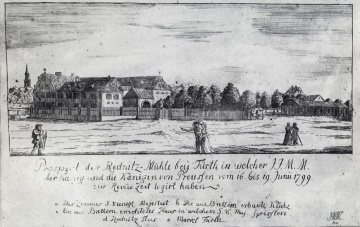 Prospect der Rednitz-Mühle bey Fürth in welcher I.I.M.M.
der König und die Königin von Preussen vom 16 bis 19 Junii 1799.
zur Revüe Zeit logirt haben.
a Der Zimmer S. Majestät b Die aus Brettern erbaute Küche
c Ein aus Brettern errichtetes Haus in welchem S. K. Maj. Speisten
d Rednitz Fluss e Markt Fürth.